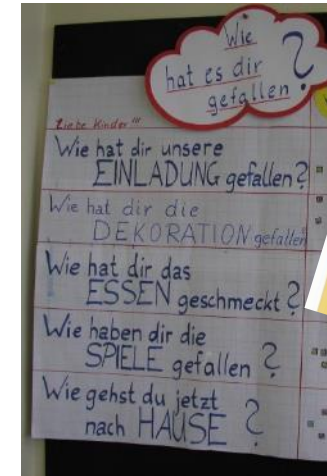 Wie
hat es dir
gefallen?
Liebe Kinder"
Wie hat dir unsere
EINLADUNG gefallen?
Wie hat dir die
DEKORATION gefallen
Wie hat dir das
ESSEN geschmeckt?
Wie haben dir die
SPIELE gefallen?
Wie gehst du jetzt
nach HAUSE?